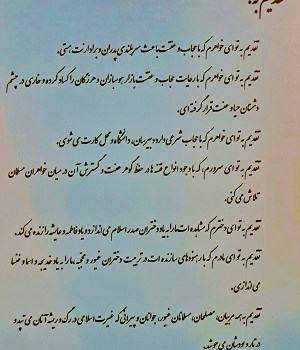 تقدیم به:
تقدیم به تو ای خواهرم که با حجاب و عفتت باعث سربلندی پدران و برادرانت هستی.
تقدیم به تو ای خواهرم که با رعایت حجاب و عفتت بازار هوسبازان و هرزگان را کساد کرده و خاری در چشم
دشمنان حیا و عفت قرار گرفته ای.
تقدیم به تو ای خواهرم که با حجاب شرعی وارد دبیرستان، دانشگاه و محل کارت می شوی.
تقدیم به تو ای سرورم، که با وجود انواع فتنه ها در حفظ گوهر عفت و گسترش آن در میان خواهران مسلمان
تلاش می کنی.
تقدیم به تو ای دخترم که مشاهده ات ما را به یاد دختران صدر اسلام می اندازد و یاد فاطمه و عایشه را زنده می کند.
تقدیم به تو ای مادرم که با رهنمودهای سازنده ات در تربیت دختران غیور و نجیبه ما را به یاد خدیجه و اسما و خنسا
می اندازی.
تقدیم به همه مربیان، مصلحان، مسلمانان غیور، جوانان و پیرانی که غیرت اسلامی در رگ و ریشه آنان می تپد و
در تار و پودشان می جوشد.